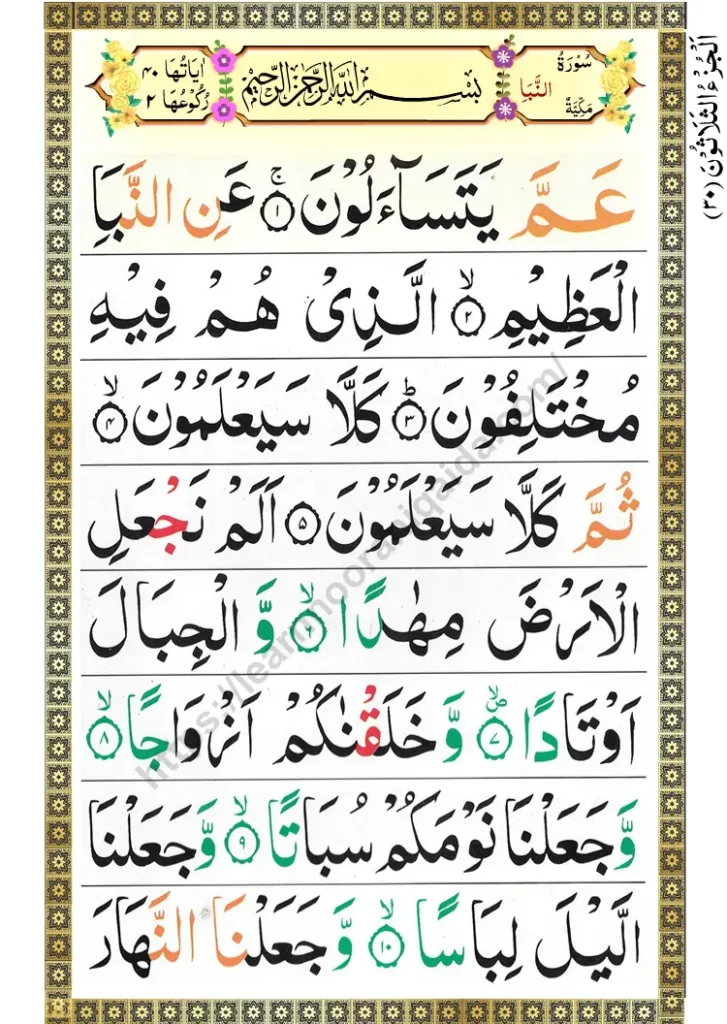 اَلْجُزْءُ الثَّلَاثُوْنَ (۳۰)
سُوْرَةُ النَّبَاِ مَكِّيَّةٌ
بِسْمِ اللهِ الرَّحْمٰنِ الرَّحِيْمِ
اٰيَاتُهَا ۴۰
رُكُوْعُهَا ۲
عَمَّ يَتَسَآءَلُوْنَ ۚ ۱ عَنِ النَّبَاِ
الْعَظِيْمِ ۙ ۲ الَّذِىْ هُمْ فِيْهِ
مُخْتَلِفُوْنَ ؕ ۳ كَلَّا سَيَعْلَمُوْنَ ۙ ۴
ثُمَّ كَلَّا سَيَعْلَمُوْنَ ۵ اَلَمْ نَجْعَلِ
الْاَرْضَ مِهٰدًا ۙ ۶ وَّ الْجِبَالَ
اَوْتَادًا ۪ۙ ۷ وَّ خَلَقْنٰكُمْ اَزْوَاجًا ۙ ۸
وَّ جَعَلْنَا نَوْمَكُمْ سُبَاتًا ۙ ۹ وَّ جَعَلْنَا
الَّيْلَ لِبَاسًا ۙ ۱۰ وَّ جَعَلْنَا النَّهَارَ
https://learnnooraniqaida.com/